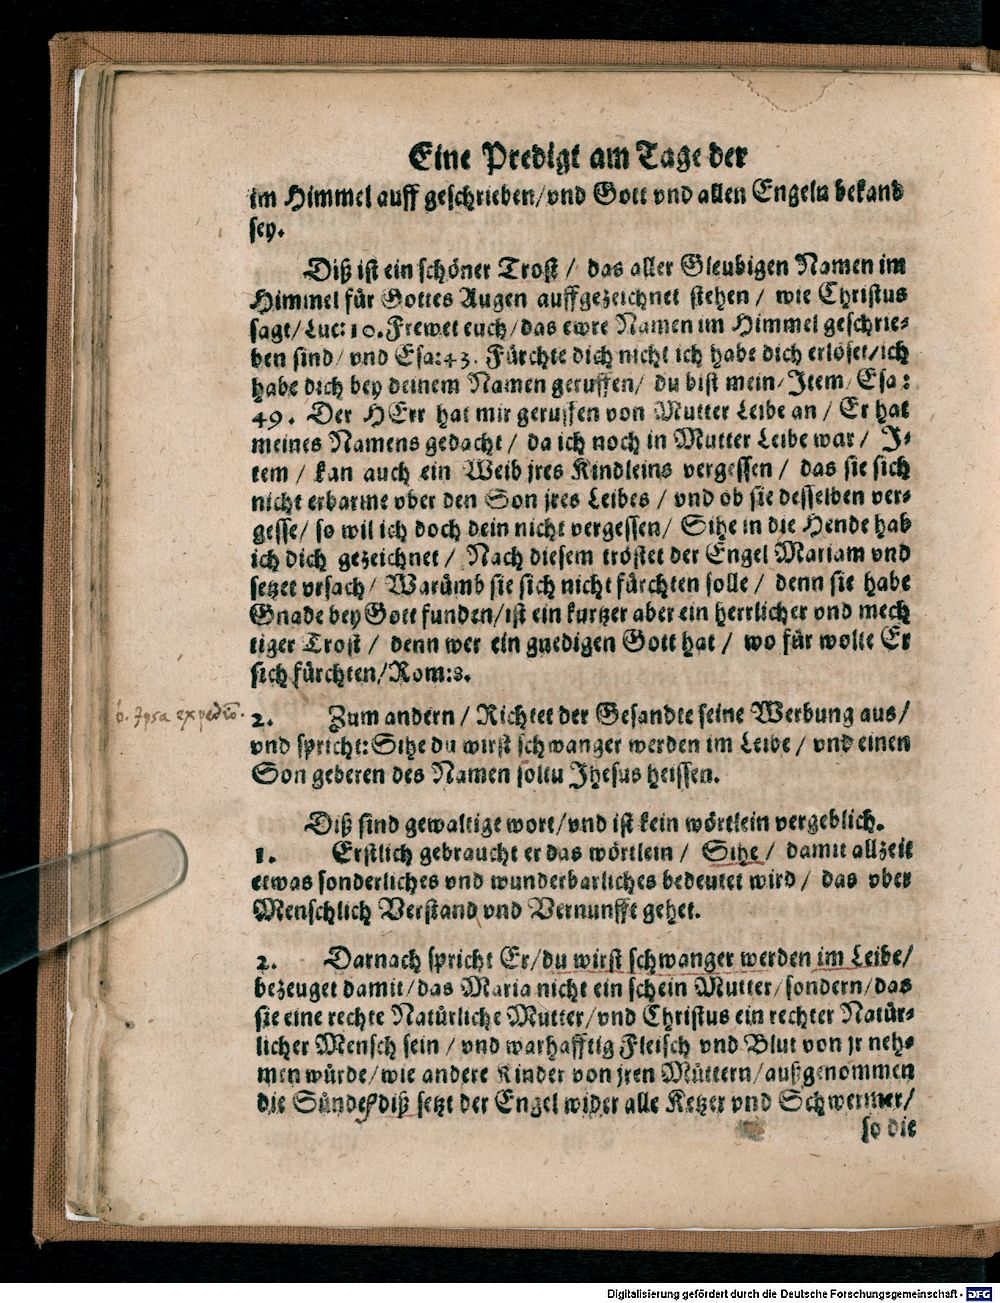 Eine Predigt am Tage der
im Himmel auff geschrieben/vnd Gott vnd allen Engeln bekand
sey.
Diß ist ein schöner Trost / das aller Gleubigen Namen im
Himmel für Gottes Augen auffgezeichnet stehen / wie Christus
sagt/Luc: 10. Frewet euch/das ewre Namen im Himmel geschrie-
ben sind/ vnd Esa:43. Fürchte dich nicht ich habe dich erlöset/ich
habe dich bey deinem Namen geruffen/ du bist mein/Item/Esa:
49. Der HErr hat mir geruffen von Mutter Leibe an / Er hat
meines Namens gedacht / da ich noch in Mutter Leibe war / J-
tem / kan auch ein Weib jres Kindleins vergessen / das sie sich
nicht erbarme vber den Son jres Leibes / vnd ob sie desselben ver-
gesse/ so wil ich doch dein nicht vergessen/ Sihe in die Hende hab
ich dich gezeichnet / Nach diesem tröstet der Engel Mariam vnd
setzet vrsach/ Warümb sie sich nicht fürchten solle / denn sie habe
Gnade bey Gott funden/ist ein kurtzer aber ein herrlicher vnd mech
tiger Trost / denn wer ein gnedigen Gott hat / wo für wolte Er
sich fürchten/Rom:3.
b. Ipsa expeditio.
2. Zum andern / Richtet der Gesandte seine Werbung aus/
vnd spricht: Sihe du wirst schwanger werden im Leibe / vnd einen
Son geberen des Namen soltu Jhesus heissen.
Diß sind gewaltige wort/vnd ist kein wörtlein vergeblich.
1. Erstlich gebraucht er das wörtlein / Sihe / damit allzeit
etwas sonderliches vnd wunderbarliches bedeutet wird / das vber
Menschlich Verstand vnd Vernunfft gehet.
2. Darnach spricht Er/du wirst schwanger werden im Leibe/
bezeuget damit/das Maria nicht ein schein Mutter/sondern/das
sie eine rechte Natürliche Mutter/vnd Christus ein rechter Natür-
licher Mensch sein / vnd warhafftig Fleisch vnd Blut von jr neh-
men würde/wie andere Kinder von jren Müttern/außgenommen
die Sünde/diß setzt der Engel wider alle Ketzer vnd Schwermer/
so die
Digitalisierung gefördert durch die Deutsche Forschungsgemeinschaft - DFG